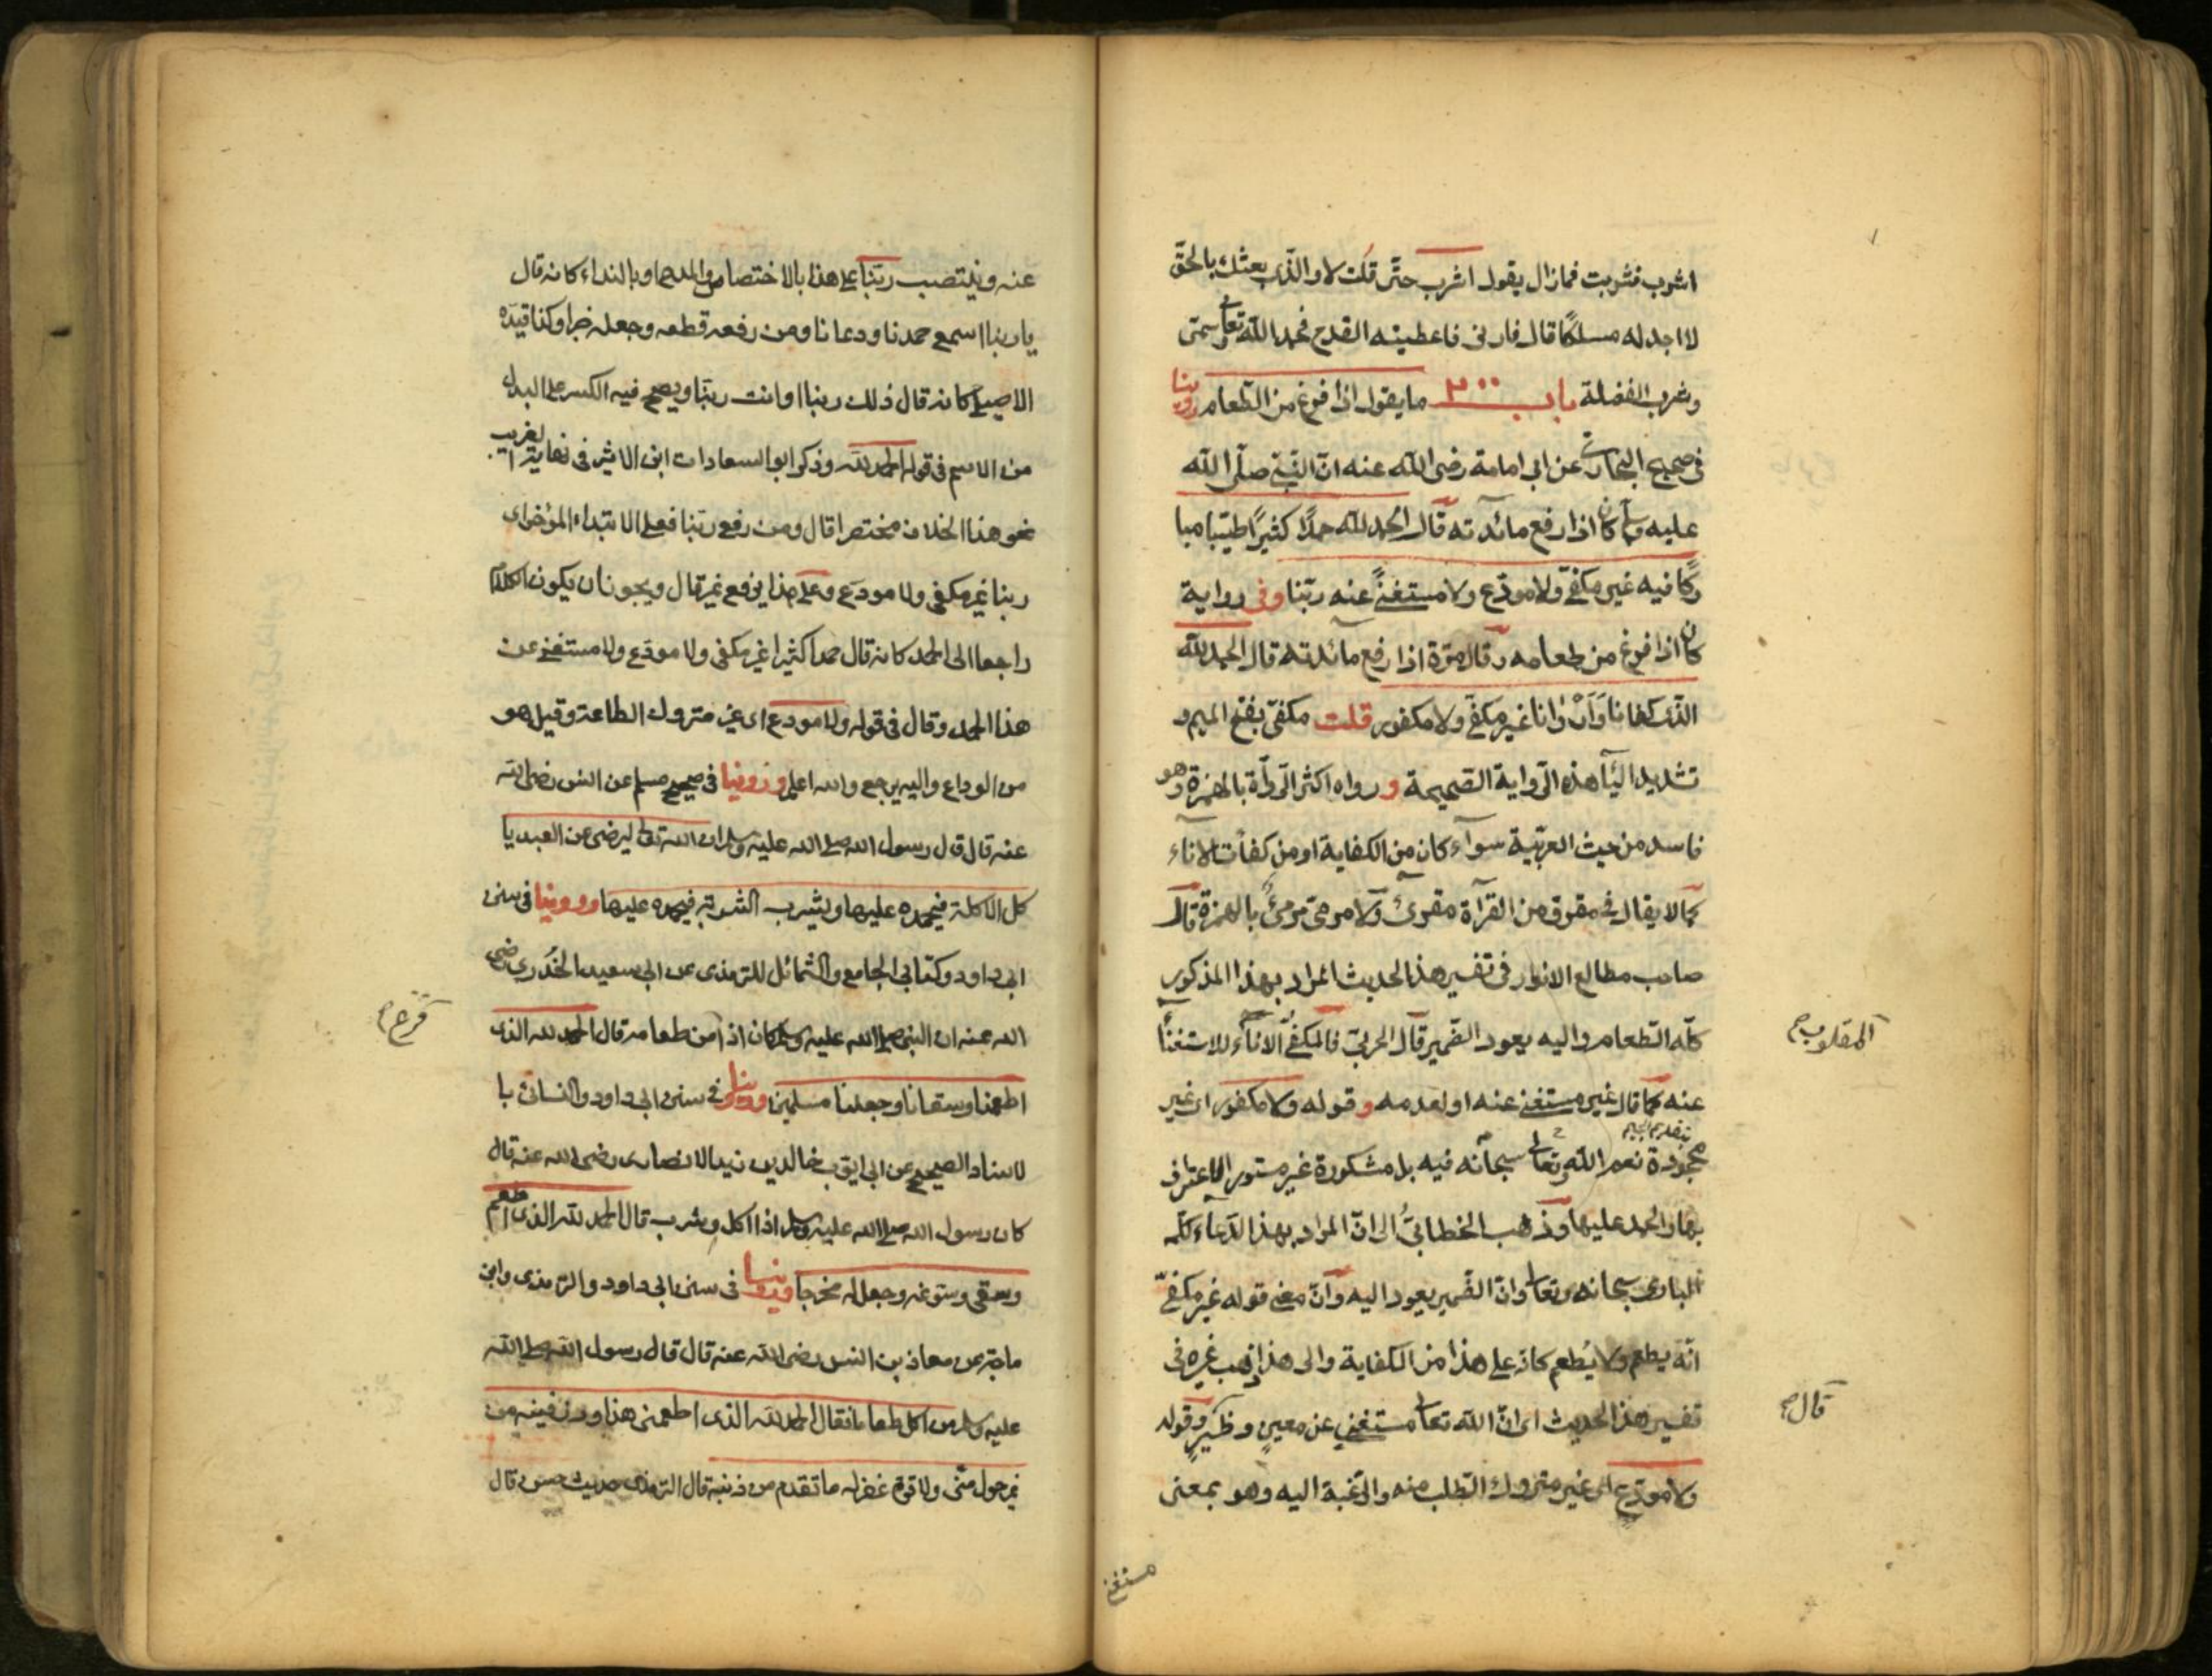 اشرب فشربت فمازال يقول اشرب حتى قلت لا والذى بعثك بالحق
لا اجد له مسلكا قال فارنى فاعطيته القدح فحمد الله تعالى وسمى
وشرب الفضلة باب ٣٠٠ مايقول اذا فرغ من الطعام روينا
فى صحيح البخارى عن ابى امامة رضى الله عنه ان النبى صلى الله
عليه وسلم كان اذا رفع مائدته قال الحمد لله حمدا كثيرا طيبا مبا
ركا فيه غير مكفى ولا مودع ولا مستغنى عنه ربنا وفى رواية
كان اذا فرغ من طعامه وقال مرة اذا رفع مائدته قال الحمد لله
الذى كفانا وآروانا غير مكفى ولا مكفور قلت مكفى بفتح الميم و
تشديد الياء هذه الرواية الصحيحة و رواه اكثر الرواة بالهمزة وهو
فاسد من حيث العربية سواء كان من الكفاية او من كفأت الاناء
كما لا يقال فى مقرو من القرآة مقرئ ولا مرمى مرمئ بالهمزة قال
صاحب مطالع الانوار فى تفسير هذا الحديث المراد بهذا المذكور
كله الطعام واليه يعود الضمير قال الحربى فالمكفى الاناء للاستغناء
المقلوب صح
عنه كما قال غير مستغنى عنه او لعدمه و قوله ولا مكفور اى غير
مجحودة نعم الله وتعالى سبحانه فيه بل مشكورة غير مستور الاعتراف
بتقديم الجيم
بها والحمد عليها وذهب الخطابى الى ان المراد بهذا الدعاء كله
البارى سبحانه وتعالى وان الضمير يعود اليه وان معنى قوله غير مكفى
انه يطعم ولا يطعم كانه على هذا من الكفاية والى هذا ذهب غيره فى
تفسير هذا الحديث اى ان الله تعالى مستغنى عن معين وظهير وقوله
قال صح
ولا مودع اى غير متروك الطلب منه والرغبة اليه وهو بمعنى
مستغنى
عنه وينتصب ربنا على هذا بالاختصاص والمدح او بالنداء كانه قال
يا ربنا اسمع حمدنا ودعانا ومن رفعه قطعه وجعله خبرا وكذا قيده
الاصيلى كانه قال ذلك ربنا او انت ربنا ويصح فيه الكسر على البدل
من الاسم فى قوله الحمد لله وذكر ابو السعادات ابن الاثير فى نهاية الغريب
نحو هذا الخلاف مختصرا قال ومن رفع ربنا فعلى الابتداء المؤخر اى
ربنا غير مكفى ولا مودع وعلى هذا يرفع غير قال ويجوز ان يكون الكلام
راجعا الى الحمد كانه قال حمدا كثيرا غير مكفى ولا مودع ولا مستغنى عن
هذا الحمد وقال فى قوله ولا مودع اى غير متروك الطاعة وقيل هو
من الوداع واليه يرجع والله اعلم وروينا فى صحيح مسلم عن انس رضى الله
عنه قال قال رسول الله صلى الله عليه وسلم ان الله تعالى ليرضى عن العبد يا
كل الاكلة فيحمده عليها ويشرب الشربة فيحمده عليها وروينا فى سنن
ابى داود وكتابى الجامع والشمائل للترمذى عن ابى سعيد الخدرى رضى
الله عنه ان النبى صلى الله عليه وسلم كان اذا من طعامه قال الحمد لله الذى
فرغ صح
اطعمنا وسقانا وجعلنا مسلمين وروينا فى سنن ابى داود والنسائى با
لاسناد الصحيح عن ابى ايوب خالد بن زيد الانصارى رضى الله عنه قال
كان رسول الله صلى الله عليه وسلم اذا اكل وشرب قال الحمد لله الذى اطعم
وسقى وسوغه وجعل له مخرجا وروينا فى سنن ابى داود والترمذى وابن
ماجة عن معاذ بن انس رضى الله عنه قال قال رسول الله صلى الله
عليه وسلم من اكل طعاما فقال الحمد لله الذى اطعمنى هذا ورزقنيه من
غير حول منى ولا قوة غفر له ما تقدم من ذنبه قال الترمذى حديث حسن قال